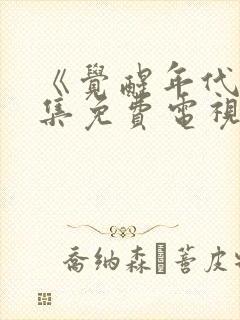 《覺醒年代
集免費電視
喬納森·蓍皮